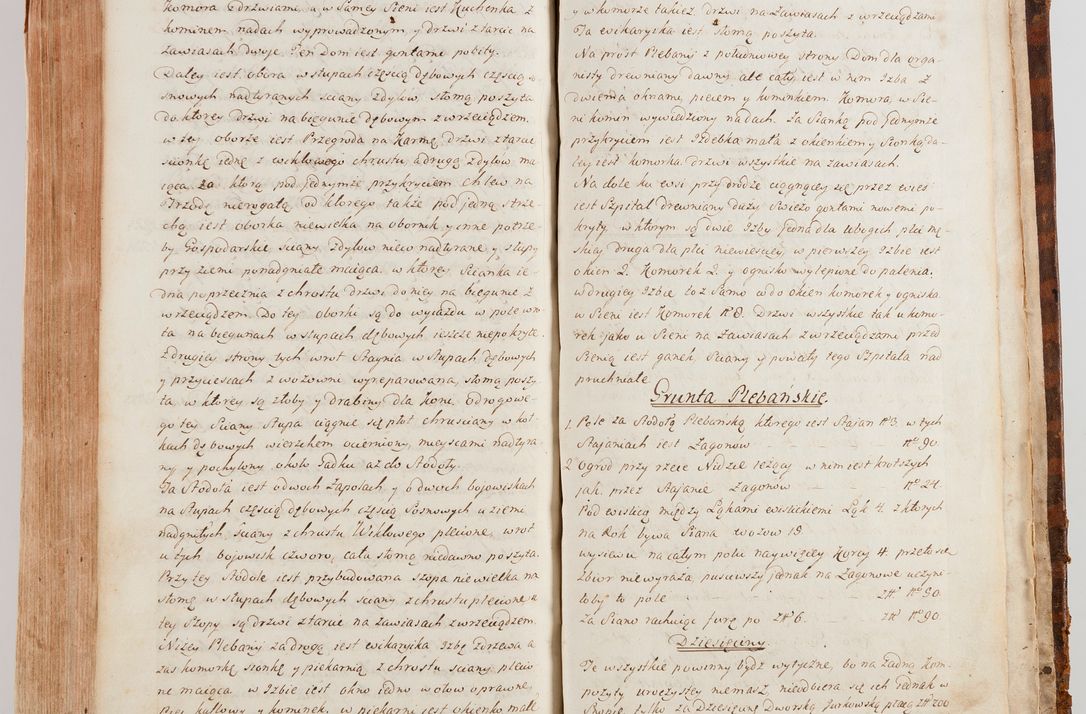 Komora z drzwiami, a w samey Sieni iest Kuchenka z
kominem nadach wyprowadzonym y drzwi ztarcic na
zawiasach dwoje. Ten dom iest gontami pobity.
Daley iest obora w słupach częścią dębowych częścią so-
snowych nadtyranych sciany zdylow, słomą poszyta
do ktorey drzwi na biegunie dębowym z wrzeciądzem.
w tey oborze iest Przegroda na Karmę, drzwi z tarcic
scionkę iednę z wiklowego chrustu a drugą z dylow ma-
iąca, za ktorą pod jednymże przykryciem Chlew na
Trzodę nierogatą, od ktorego także pod jedną strze-
chą iest oborka niewielka na obornik y inne potrze-
by Gospodarskie sciany zdylow nieco nadtyrane y słupy
przy ziemi ponadgniłe maiąca. w ktorey Scianka ie-
dna poprzecznia z chrostu drzwi do niey na biegunie z
wrzeciądzem. Do tey oborki są do wyiazdu w pole wro-
ta na biegunach w słupach dębowych ieszcze niepokryte.
Z drugiey strony tych wrot Staynia w słupach dębowych
y przyciesiach z wozownią wyreparowana, słomą poszy-
ta, w ktorey są złoby y drabiny dla Koni, od rogowe-
go tey Sciany Słupa ciągnie się płot chrusciany w koł-
kach dębowych wierzchem ocierniony, mieyscami nadtyra-
ny y pochylony około Sadku aż do Stodoły.
Ta Stodoła iest o dwoch Zapolach y o dwoch boiowiskach
na Słupach częścią dębowych częścią Sosnowych u ziemi
nadgniłych, Sciany z chrustu Wiklowego plecione, wrot
u tych bojowisk czworo, cała słomą niedawno poszyta.
Przy tey stodole iest przybudowana szopa niewielka na
słomę w słupach dębowych sciany z chrustu plecione u
tey Szopy są drzwi z tarcic na zawiasach z wrzeciądzem.
Niżey Plebanij za drogą iest wikaryika Izbę z drzewa a
zas komorkę sionkę y piekarnią z chrostu sciany plecio-
ne maiąca w Izbie iest okno iedno w ołow oprawne,
Piec kaflowy y kominek, w piekarni iest okienko małe
y w komorze takież. drzwi na zawiasach z wrzeciądzami
Ta wikaryika iest słomą poszyta.
Na prost Plebanij z południowey strony Dom dla orga-
nisty drewniany dawny ale cały, iest w nim Izba z
dwiema oknami, piecem y kominkiem. Komora, w Sie-
ni komin wywiedziony nadach. za Sionką pod jednymże
przykryciem iest Izdebka mała z okienkiem y Sionką, da-
ley iest komorka. drzwi wszystkie na zawiasach.
Na dole ku wsi przy drodze ciągnącey się przez wies
iest Szpital drewniany duży swieżo gontami nowemi po-
kryty. w ktorym są dwie Izby jedna dla ubogich płci mę-
skiey, druga dla płci niewiesciey, w pierwszey Izbie iest
okien 2. Komorek 2. y ognisko wylepione do palenia.
w drugiey Izbie toż Samo co do okien komorek y ogniska.
w Sieni iest Komorek Nro 8. Drzwi wszystkie tak u komo-
rek jako u Sieni na zawiasach z wrzeciądzami przed
Sienią iest ganek, Sciany y powały tego Szpitala nad
pruchniałe
Grunta Plebańskie.
1. Pole za Stodołą Plebańską ktorego iest Staian No 3. w tych
Staianiach iest Zagonow No 90
2. Ogrod przy rzece Nidzie leżący w nim iest krotszych
jak przez Staianie Zagonow No 24.
Pod wislicą między Łąkami wislickiemi Łąk 4. z ktorych
na Rok bywa Siana wozow 15.
wysiewu na całym polu naywięcey Korcy 4. przeto się
zbior niewyraża, pusciwszy jednak na Zagonowe uczyni-
łoby to pole złł No 90.
za Siano rachuiąc furę po złł 6. złł No 90.
Dziesięciny
Te wszystkie powinny bydz wytyczne, bo na żadną kom-
pozyty uroczystey niemasz, nieodbiera się ich jednak w
tylko za Dziesięcinę Dworską Jurkowską płacą złł 200